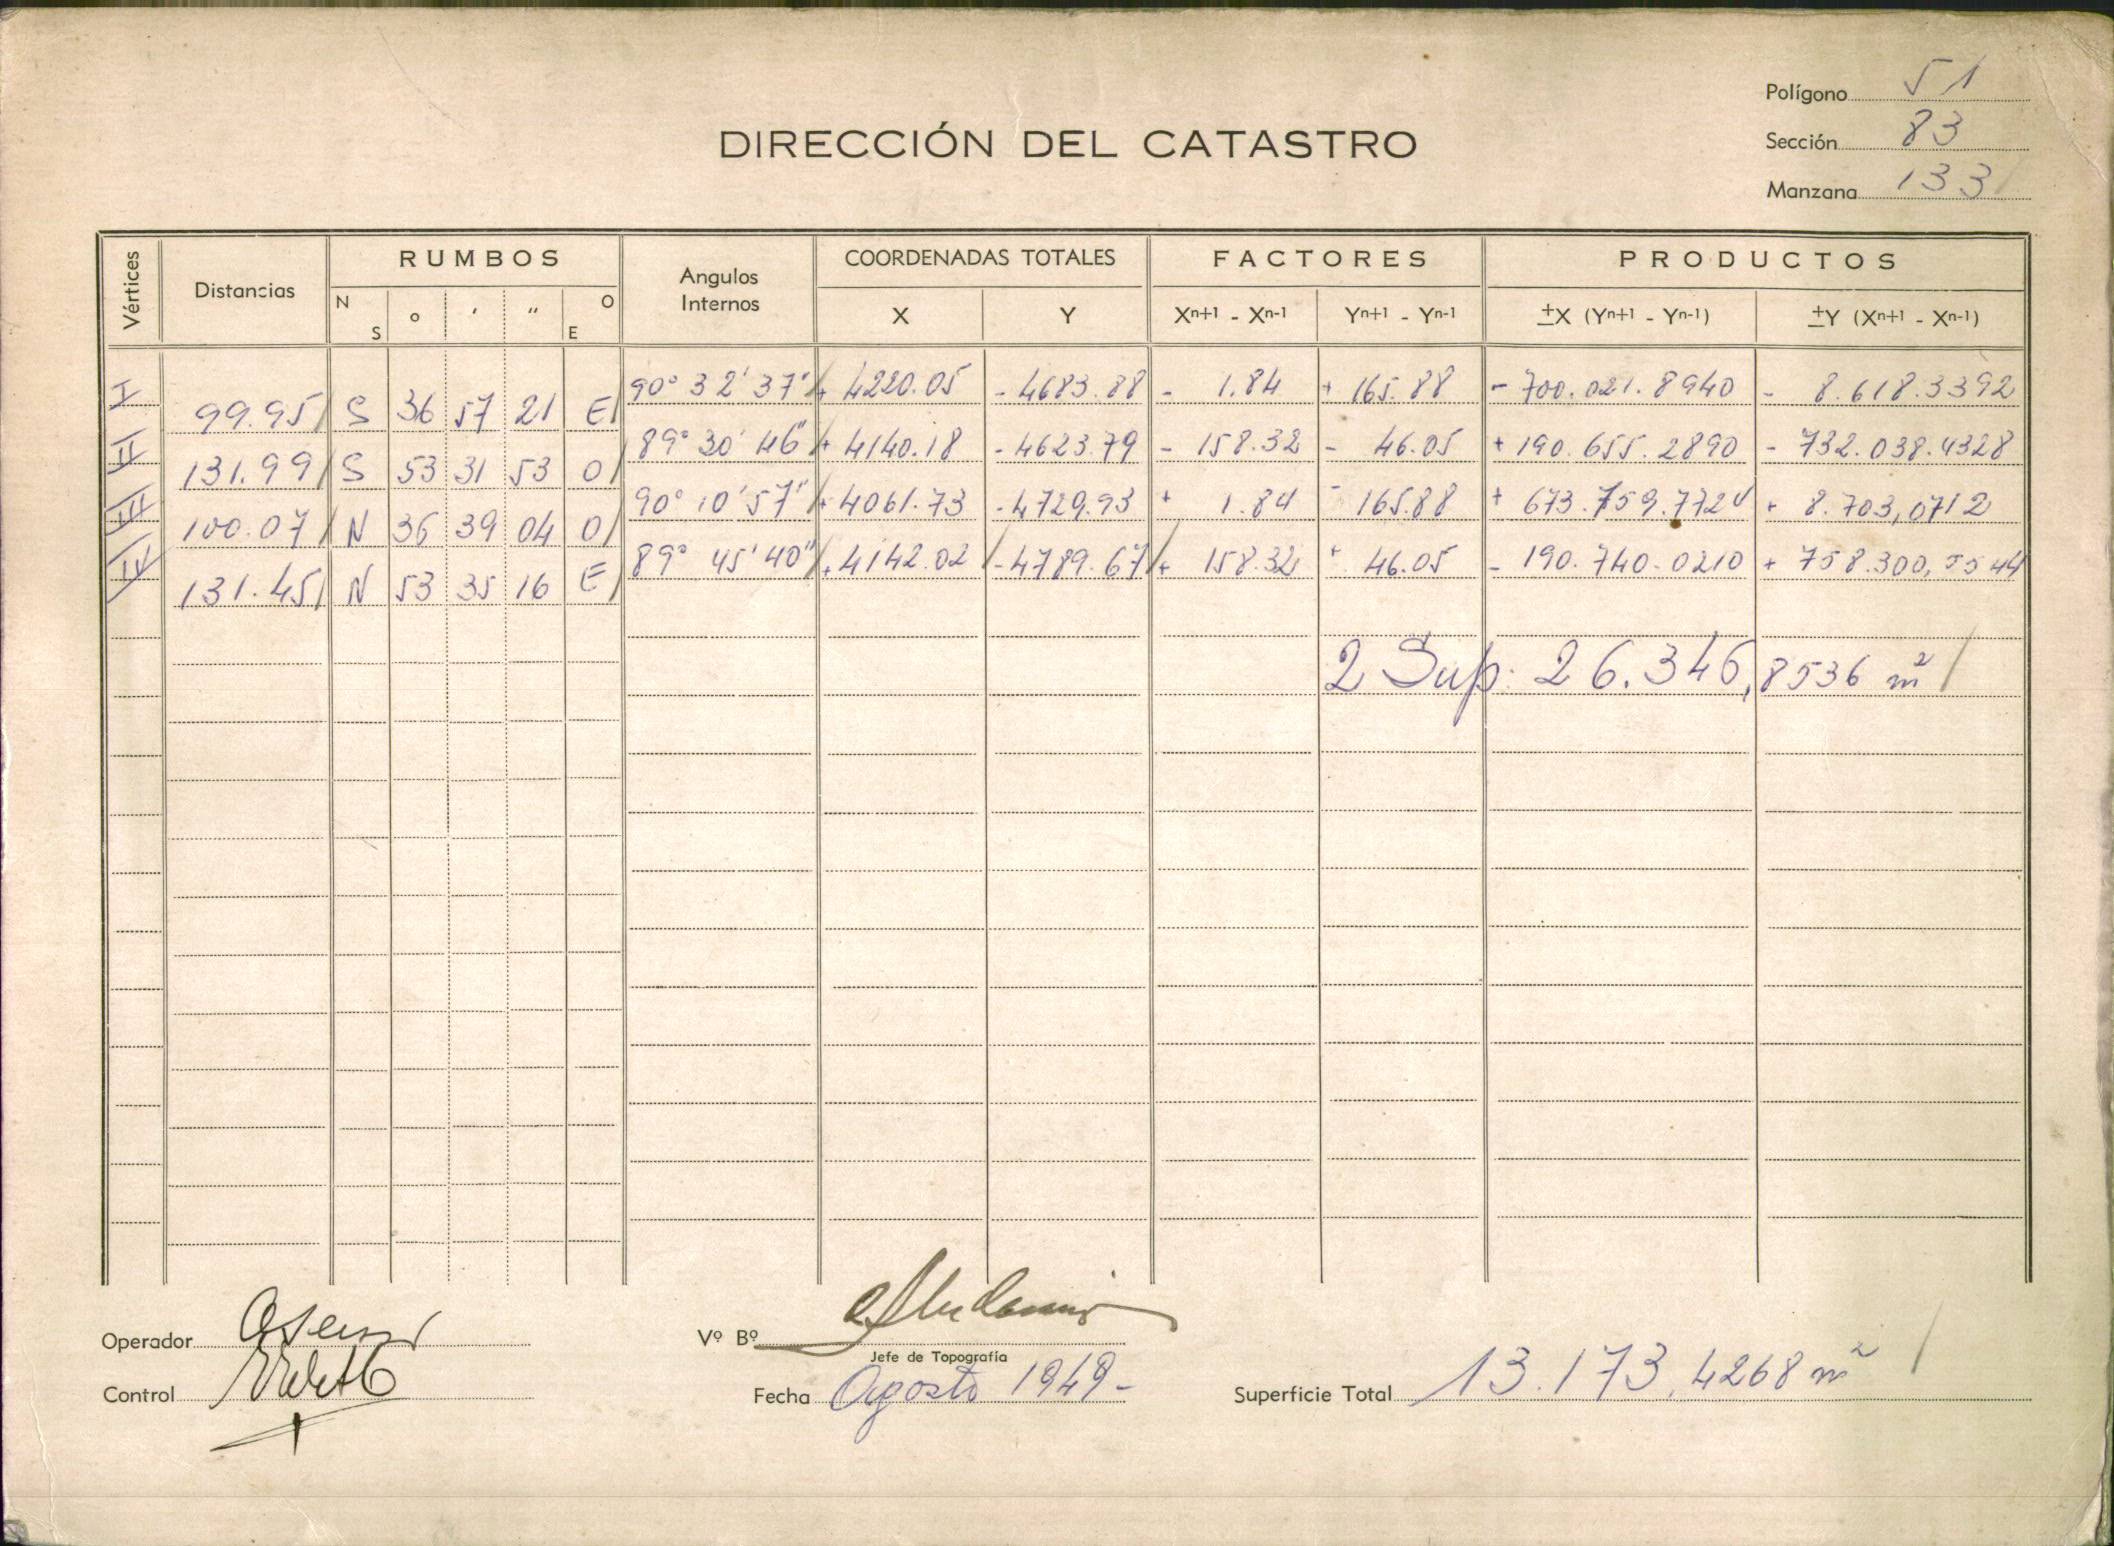 Polígono 51
DIRECCIÓN DEL CATASTRO
Sección 83
Manzana 133
Vértices Distancias RUMBOS Angulos Internos COORDENADAS TOTALES FACTORES PRODUCTOS
N S ° ' " O E X Y Xn+1 - Xn-1 Yn+1 - Yn-1 ±X (Yn+1 - Yn-1) ±Y (Xn+1 - Xn-1)
I 90° 32' 37" + 4220.05 - 4683.88 - 1.84 + 165.88 - 700.021.8940 - 8.618.3392
99.95 S 36 57 21 E
II 89° 30' 46" + 4140.18 - 4623.79 - 158.32 - 46.05 + 190.655.2890 - 732.038.4328
131.99 S 53 31 53 O
III 90° 10' 57" + 4061.73 - 4729.93 + 1.84 - 165.88 + 673.759.7724 + 8.703,0712
100.07 N 36 39 04 O
IV 89° 45' 40" + 4142.02 - 4789.67 + 158.32 + 46.05 - 190.740.0210 + 758.300,5544
131.45 N 53 35 16 E
2 Sup: 26.346,8536 m²
Operador
Vº Bº
Jefe de Topografía
Control
Fecha Agosto 1949-
Superficie Total 13.173,4268 m²